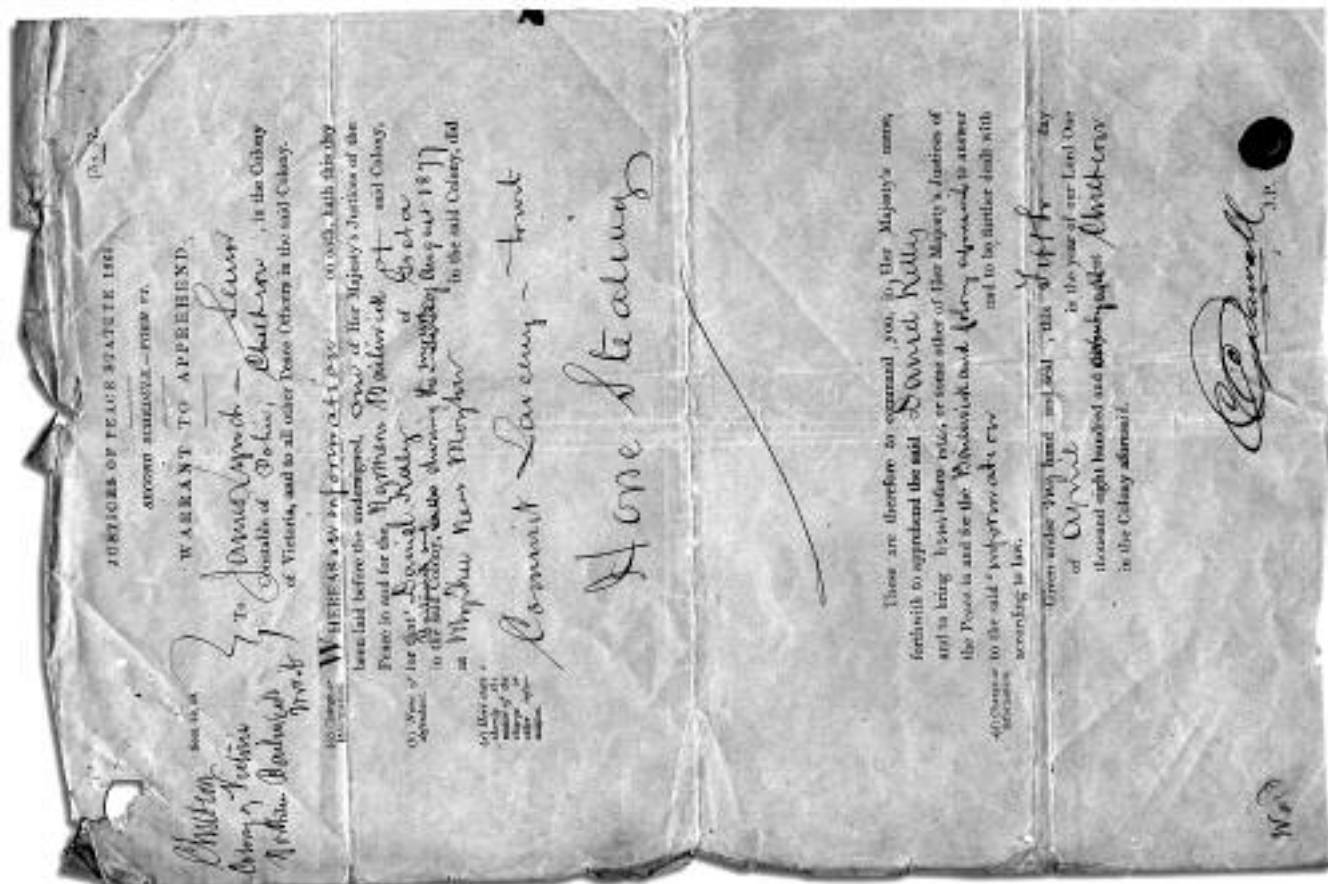 JUSTICES OF PEACE STATUTE 1865
SECOND SCHEDULE.—FORM
WARRANT TO APPREHEND.
Chiltern
Colony of Victoria
Northern Bailiwick
To James Lynch
Constable of Police, Chiltern, in the Colony
of Victoria, and to all other Peace Officers in the said Colony.
WHEREAS information on oath, hath this day
been laid before the undersigned, one of Her Majesty's Justices of the
Peace in and for the Northern Bailiwick of said Colony,
for that Daniel Kelly of Greta
in the said Colony, during the month of August 1877
at near in the said Colony, did
Commit Larceny - to wit
Horse Stealing
These are therefore to command you, in Her Majesty's name,
forthwith to apprehend the said Daniel Kelly
and to bring him before me, or some other of Her Majesty's Justices of
the Peace in and for the Bailiwick and Colony aforesaid to answer
to the said information and to be further dealt with
according to law.
Given under my hand and seal, this Fifth day
of April in the year of our Lord One
thousand eight hundred and Chiltern
in the Colony aforesaid.
J.P.